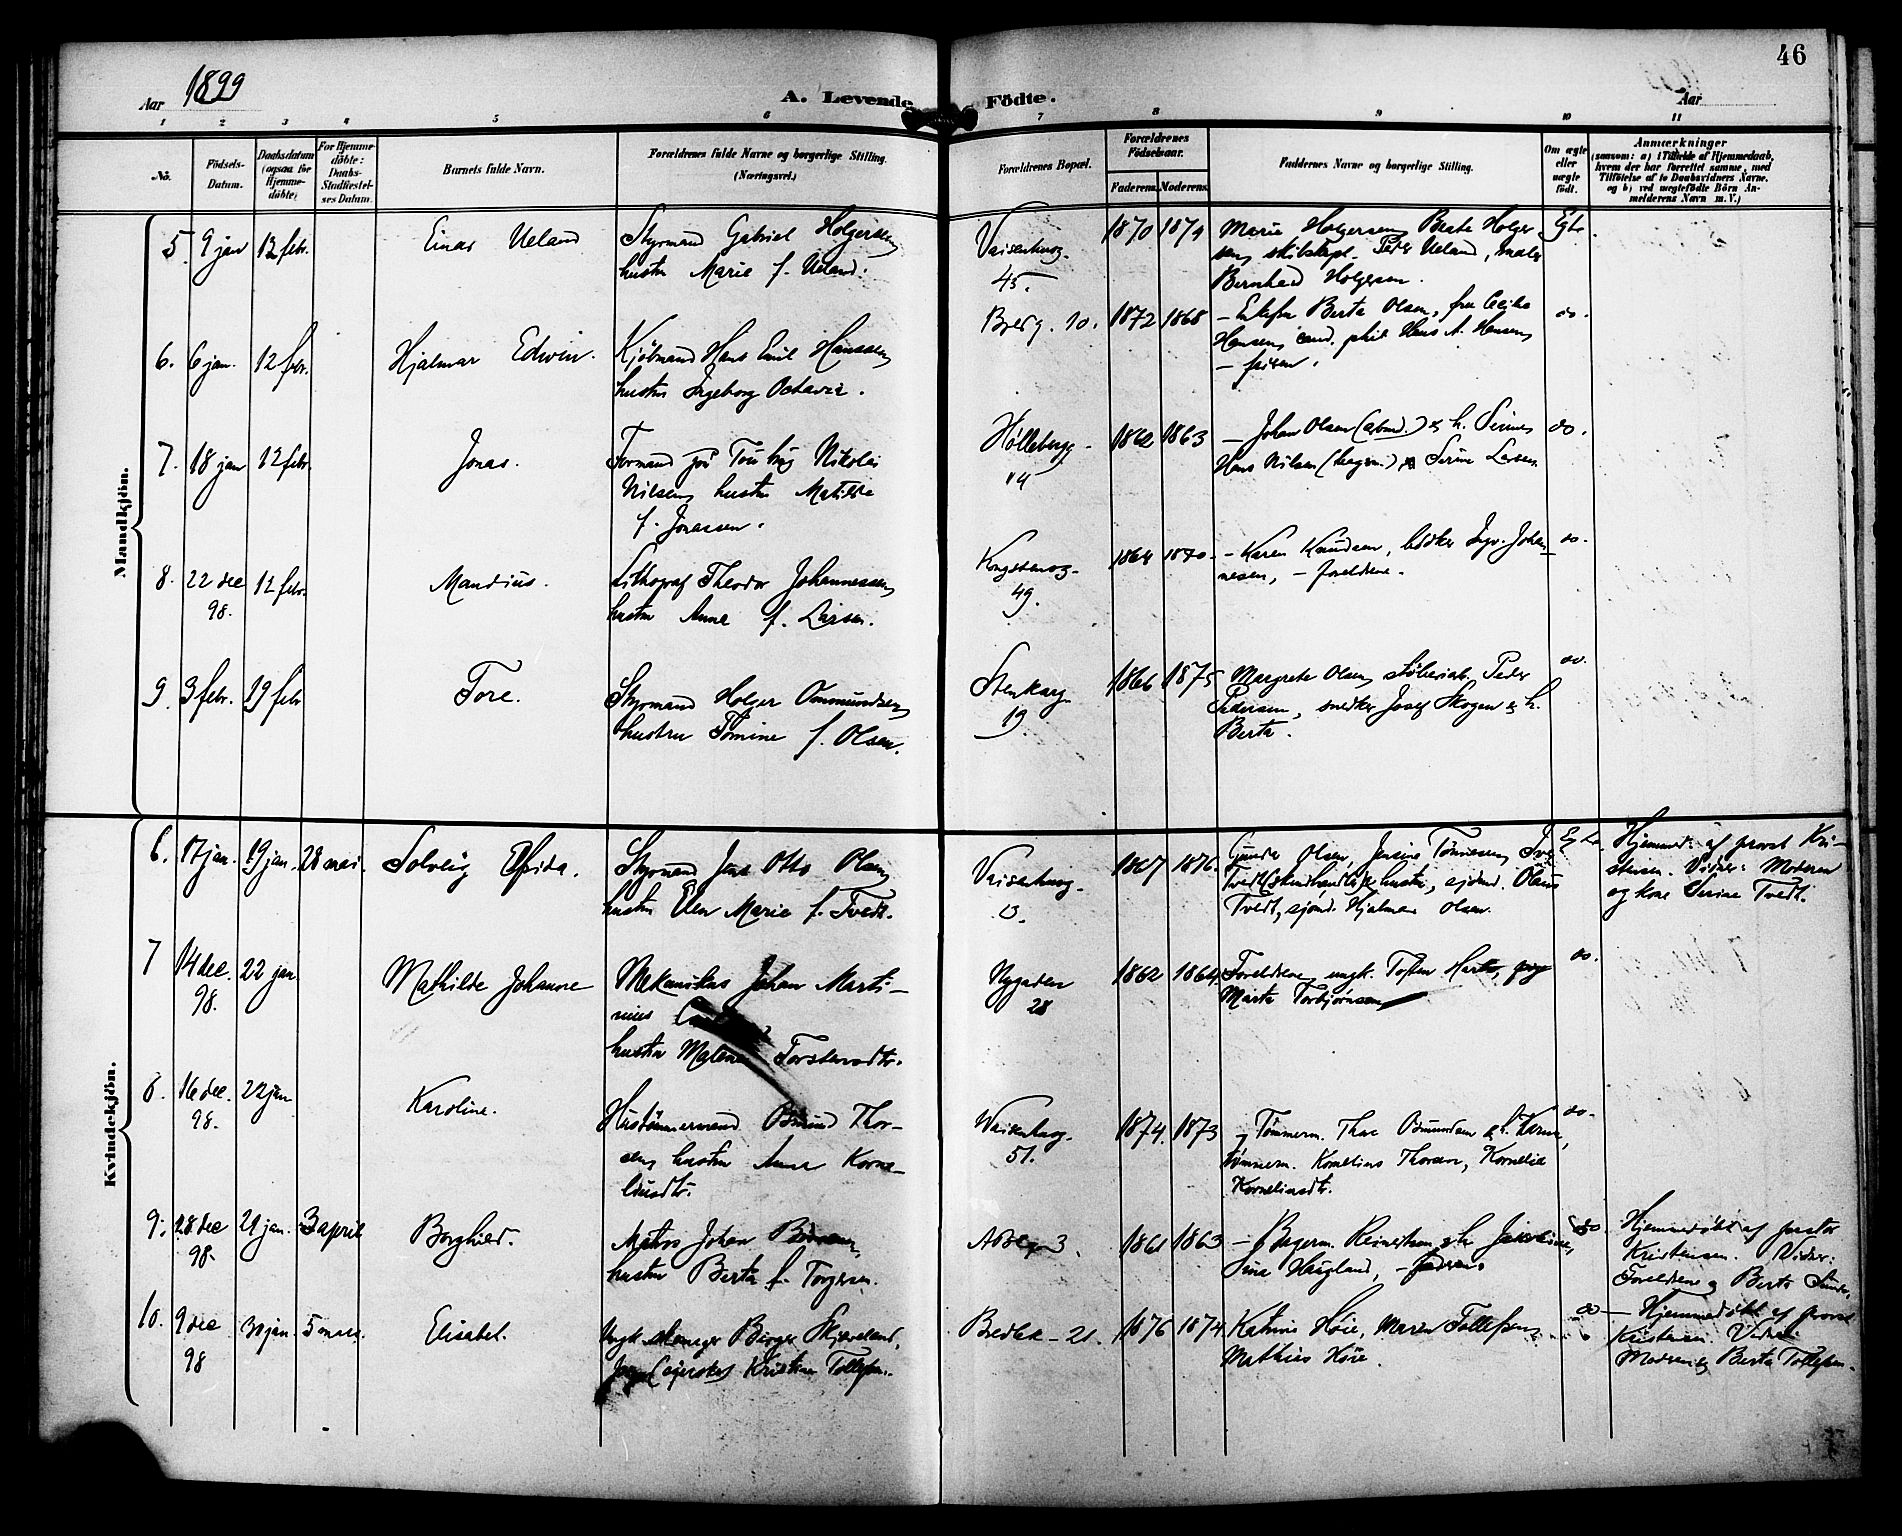 46
Aar 1899
A. Levende Födte.
Aar
1 2 3 4 5 6 7 8 9 10 11
No.
Födsels-
Datum.
Daabsdatum
(ogsaa for
Hjemme-
döbte)
For Hjemme-
döbte:
Daabs-
Stadfæstel-
ses Datum.
Barnets fulde Navn.
Forældrenes fulde Navne og borgerlige Stilling.
(Næringsvei.)
Forældrenes Bopæl.
Forældrenes
Födselsaar.
Faderens. Moderens.
Faddernes Navne og borgerlige Stilling.
Om ægte
eller
uægte
født.
Anmærkninger
(saasom: a) i Tilfælde af Hjemmedaab,
hvem der har forrettet samme, med
Tilföielse af to Daabsvidners Navne,
og b) ved uægtefödte Börn An-
melderens Navn m. V.)
Mandkjön.
5. 9 jan 12 febr. Einar Ueland
Styrmand Gabriel Holgersen
hustru Marie f. Ueland.
Vaisenhusg.
45.
1870 1874
Marie Holgersen, Beate Holger
sen, skibskapt. Peder Ueland, maler
Bernhard Holgersen.
Egte
6. 6 jan. 12 febr. Hjalmar Edwin.
Kjöbmand Hans Emil Hanssen
hustru Ingeborg Octavia.
Bredg. 10. 1872 1868
Berta Olsen, fru
Hansen, cand. phil Hans A. Hansen
do.
7. 18 jan 12 febr. Jonas.
Formand Nikolai
Nilsen, hustru Matilde
f. Jonassen.
Hölleberg
14
1862 1863
– Johan Olsen (arbmd.) & h. Serine
Hans Nilsen Serine Larsen
do.
8. 22 dec 12 febr. Mandius.
98.
Lithograf Theodor Johannessen
hustru Anne f. Larsen.
Kongstensg.
49.
1864 1870
– Karen Knudsen, bödker Ingv. Johan
nesen, – foreldrene.
do.
9. 3 febr. 19 febr Tore.
Styrmand Holger Ommundsen
hustru Tomine f. Olsen.
Stenkarg.
19
1866 1875
Margrete Olsen, Peder
Pedersen, snedker Josef Skogen & h.
Berta.
do.
Kvindekjön.
6. 17 jan. 19 jan. 28 mai. Solveig Elfrida.
Styrmand Jens Otto Olsen
hustru Elen Marie f. Tvedt.
Vaisenhusg.
13.
1867 1876.
Gunda Olsen, Jensine Tönnesen,
Tvedt hustru, sjömd. Olaus
Tvedt, sjömd. Hjalmar Olsen.
Egte.
Hjemmed. af provst Kri-
stensen. Vidner: Moderen
og kone Serine Tvedt.
7 14 dec. 22 jan Mathilde Johanne
98.
Mekanikus Johan Marti-
nius
hustru Malene Torstensdtr.
Nygaden
28
1862 1864
Foreldrene, ungk. Tosten
Marta Torbjörnsen
do.
8. 16 dec. 22 jan Karoline.
98.
Hustömmermand Osmund Thor-
sen, hustru Anne Korne-
liusdtr.
Vaisenhusg.
51.
1874. 1873
Tömmerm. Thore Osmundsen & h.
tömmerm. Kornelius Thorsen, Kornelia
Korneliusdtr.
do.
9. 28 dec 21 jan. 3 april Borghild.
98.
Matros Johan
hustru Berta f. Torgersen.
3. 1861 1863
Reinertsen & h.
Haugland,
do.
Hjemmedöbt af pastor
Kristensen. Vidner:
Foreldrene & Berta
10. 9 dec 30 jan. 5 mars. Elisabet.
98
Ungk. Börge Skjæveland,
Kristine Tollefsen.
Bredbk – 21. 1876 1874
Katrine Höie, Maren Tollefsen,
Mathias Höie.
do
– Hjemmedöbt af provst
Kristensen. Vidner:
Moderen & Berta Tollefsen.